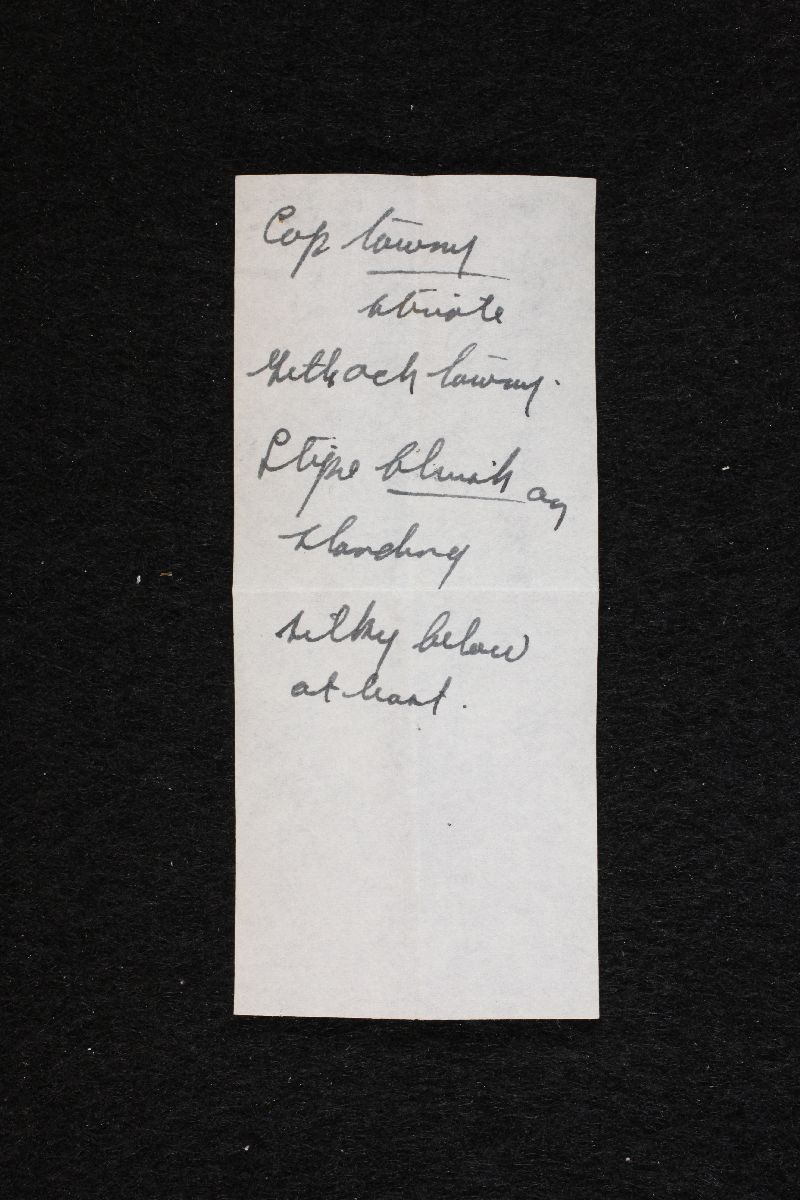 Cap tawny
striate
Gills ach tawny.
Stipe bluish on
standing
silky below
at least.